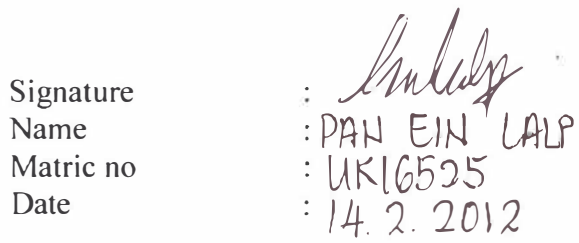 Signature :
Name : PAN EIN LALP
Matric no : UK16525
Date : 14.2.2012